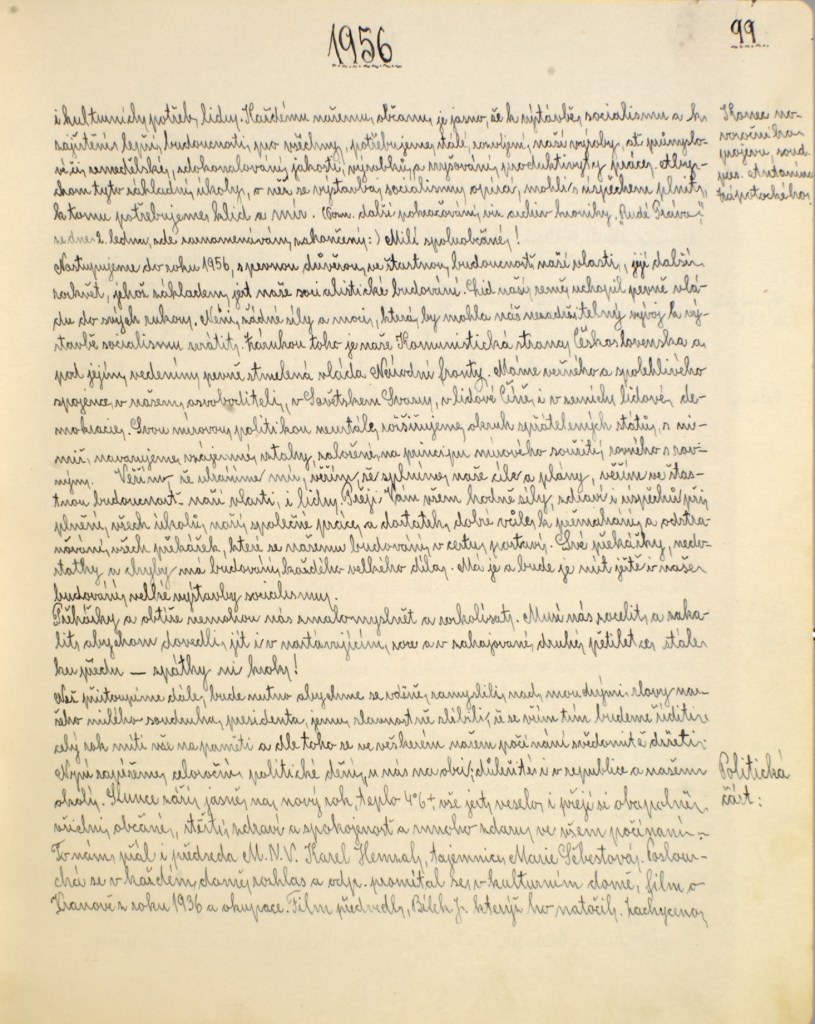 1956
99
i kulturních potřeb, lidu. Každému našemu občanu, je jasno, že k výstavbě, socialismu a k
zajištění lepší, budoucnosti, pro všechny, potřebujeme, stálé, rozvíjení, naší výroby, ať průmyslo-
vé či zemědělské, zdokonalování, jakosti, výrobků, a zvyšování, produktivity, práce. Aby-
chom tyto základní, úkoly, o něž se výstavba, socialismu, opírá, mohli s úspěchem plnit,
k tomu potřebujeme, klid a mír. (Pozn. další pokračování, viz archiv kroniky, "Rudé Právo",
ze dne 2. ledna, zde zaznamenávám, zakončený:) Milí spoluobčané,!
Konec no-
voročního
projevu, soud.
pres. Antonína
Zápotockého.
Nastupujeme do roku 1956, s pevnou důvěrou, ve šťastnou, budoucnost naší vlasti, její další
rozkvět, jehož základem, jest naše socialistické budování. Lid naší, země, uchopil pevně vlá-
du do svých rukou. Není, žádné síly a moci, která, by mohla náš nezadržitelný vývoj k vý-
stavbě socialismu zvrátit. Zárukou toho je naše Komunistická strana, Československa a
pod jejím, vedením, pevně stmelená vláda Národní fronty. Máme věrného a spolehlivého
spojence, v našem, osvoboditeli, v Sovětském Svazu, v lidové Číně, i v zemích, lidové, de-
mokracie. Svou mírovou, politikou neustále, rozšiřujeme, okruh spřátelených států, s ni-
miž, navazujeme, vzájemné, vztahy, založené, na principu mírového soužití, rovného s rov-
ným. Věříme, že uhájíme mír, věřím, že splníme, naše cíle a plány, věřím ve šťas-
tnou budoucnost naší vlasti, i lidu. Přeji Vám všem hodně síly, zdraví i úspěchů při
plnění, všech úkolů, naší, společné práce, a dostatek, dobré vůle, k přemáhání, a odstra-
ňování, všech překážek, které se našemu budování, v cestu, postaví. Své překážky, nedo-
statky a chyby má budování, každého velkého díla. Má je a bude je mít ještě i naše
budování, velké výstavby socialismu.
Překážky a obtíže nemohou nás zmalomyslnět a rozkolísat. Musí nás zocelit, a zaka-
lit, abychom dovedli, jít i v nastávajícím, roce a v zahajované, druhé, pětiletce, stále
ku předu — zpátky ni krok,!
Než přistoupíme dále, bude nutno abychme se vážně, zamyslili, nad, moudrými slovy na-
šeho milého soudruha, presidenta, jemu, slavnostně slíbili, že se vším tím budeme říditi, a
celý rok míti vše na paměti a dle toho se ve veškerém našem počínání svědomitě držeti;
Nyní zapíšeme, celoroční, politické dění, u nás na obci; důležité i v republice a našem
okolí. Slunce září, jasně, na, nový rok, teplo 4°C+, vše jest, veselo, i přejí si obapolně,
všichni, občané,, štěstí, zdraví a spokojenost a mnoho zdaru, ve všem počínání.-
Politická
část:
To nám, přál i předseda M.N.V. Karel tajemnice, Marie Šebestová. Poslou-
chá se v každém, domě, rozhlas a odp. promítal se, v kulturním domě, film o
z roku 1936 a okupace. Film předvedl, Bílek J. kterýž ho natočil. Zachyceno,